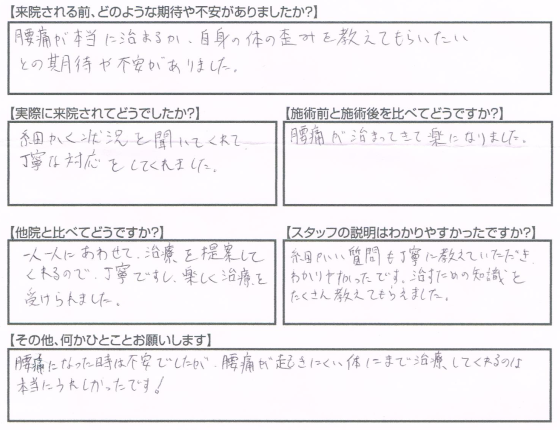 【来院される前、どのような期待や不安がありましたか?】
腰痛が本当に治まるか、自身の体の歪みを教えてもらいたい
との期待や不安がありました。
【実際に来院されてどうでしたか?】
細かく状況を聞いてくれて、
丁寧な対応をしてくれました。
【施術前と施術後を比べてどうですか?】
腰痛が治まってきて楽になりました。
【他院と比べてどうですか?】
一人一人にあわせて、治療を提案して
くれるので、丁寧ですし、楽しく治療を
受けられました。
【スタッフの説明はわかりやすかったですか?】
細かい質問も丁寧に教えていただき
わかりやすかったです。治すための知識を
たくさん教えてもらえました。
【その他、何かひとことお願いします】
腰痛になった時は不安でしたが、腰痛が起きにくい体にまで治療してくれるのは
本当にうれしかったです!